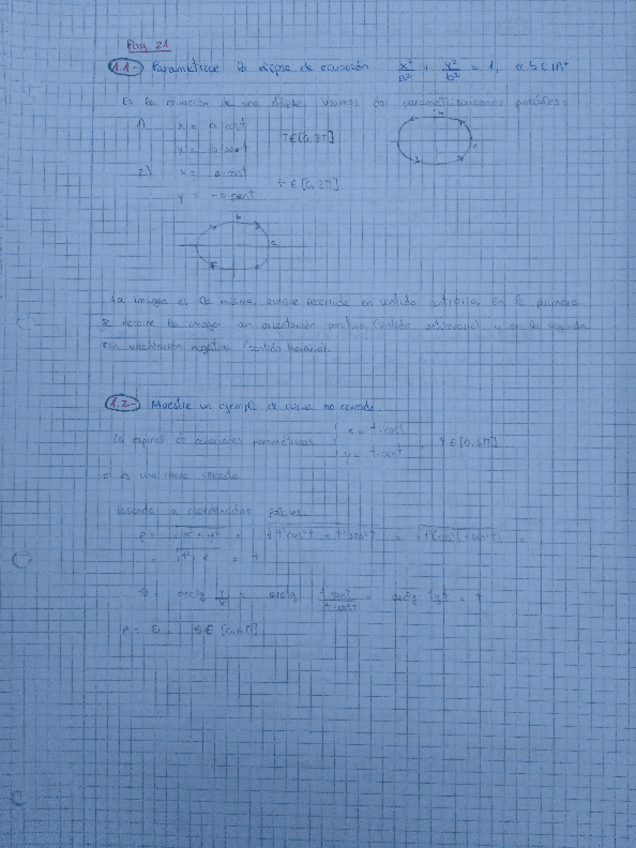 Pag. 21
1.1- Parametrice la elipse de ecuación x²/a² + y²/b² = 1, a, b ∈ ℝ⁺
Es la ecuación de una elipse. Veamos dos parametrizaciones posibles:
1) x = a cost
y = b sent
t ∈ [0, 2π]
b
a
2) x = a cost
y = -b sent
t ∈ [0, 2π]
b
a
La imagen es la misma, aunque recorrida en sentido En la primera
se recorre la imagen con orientación positiva (sentido antihorario) y en la segunda
con orientación negativa (sentido horario).
1.2- Muestre un ejemplo de curva no cerrada.
La espiral de ecuaciones paramétricas { x = t·cost
y = t·sent , t ∈ [0, 6π]
es una curva
Pasando a coordenadas polares:
ρ = √(x² + y²) = √(t²cos²t + t²sen²t) = √(t²(cos²t + sen²t)) =
= √(t²·1) = t
θ = arctg y/x = arctg (t·sent)/(t·cost) = arctg tgt = t
ρ = θ, θ ∈ [0, 6π]